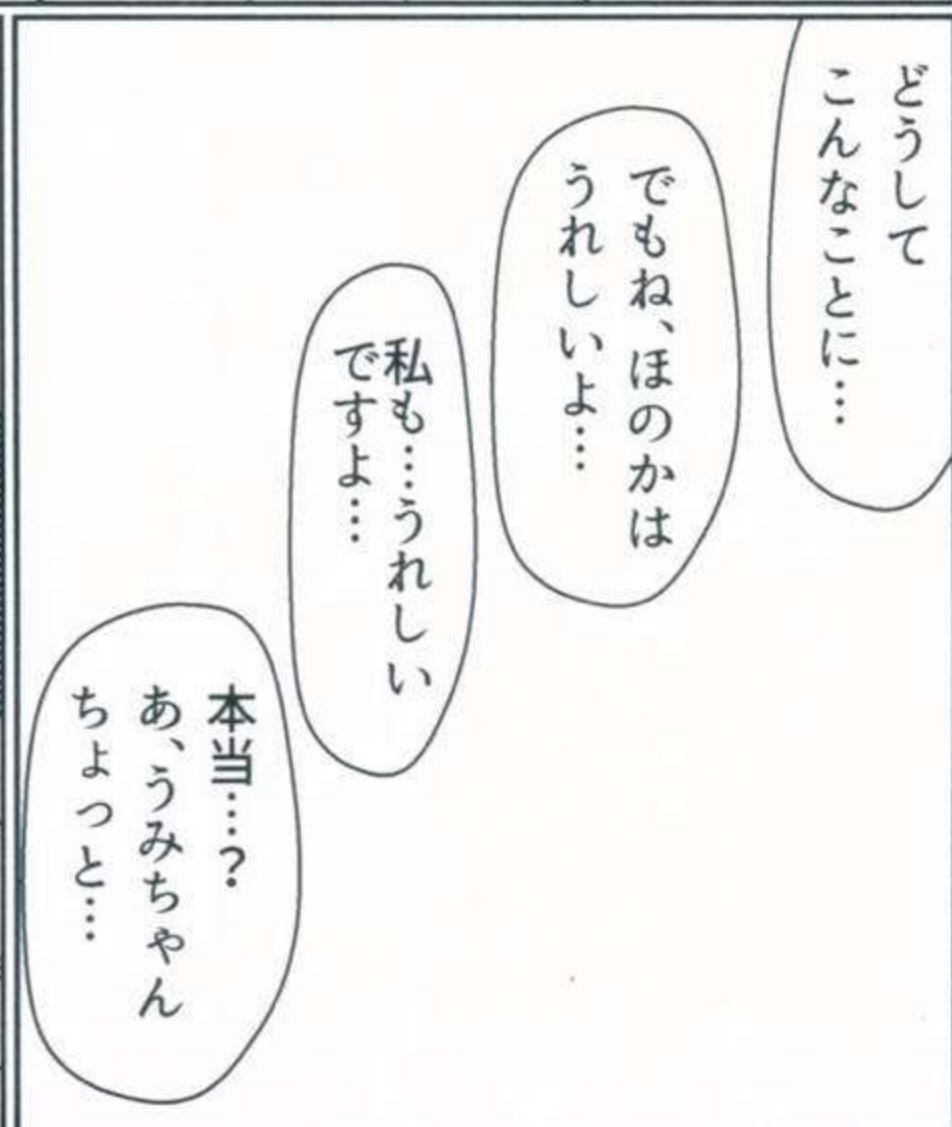 どうして
こんなことに…
でもね、ほのかは
うれしいよ…
私も…うれしい
ですよ…
本当…?
あ、うみちゃん
ちょっと…